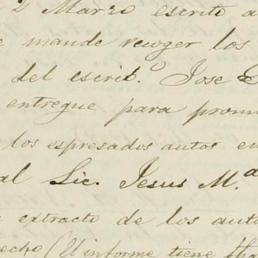 Marzo escrito a
mande recoger los
del escrib.º Jose
entregue para
los espresados autos en
al Lic. Jesus M.ª
extracto de los auto
echo (Vinforme tiene